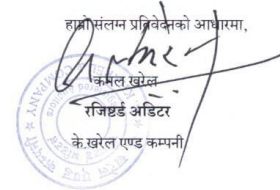 हाम्रो संलग्न प्रतिवेदनको आधारमा,
कमल खरेल
रजिष्टर्ड अडिटर
के.खरेल एण्ड कम्पनी